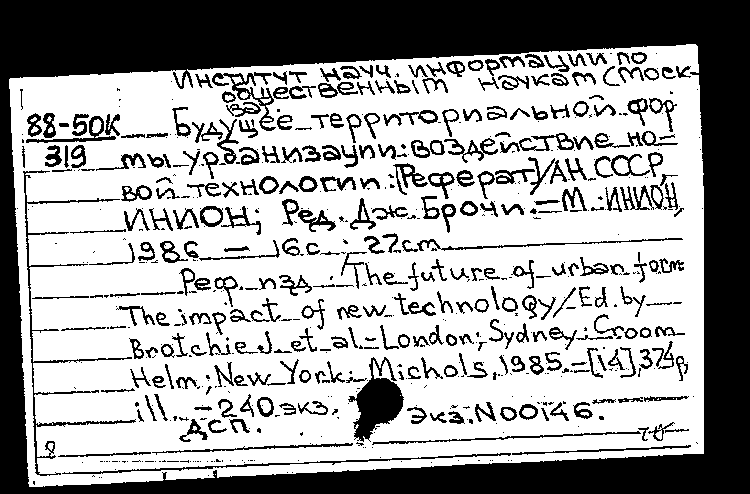 Институт науч. информации по
общественным наукам (Моск-
ва)
88-50К Будущее территориальной фор
319 мы урбанизации: воздействие но-
вой технологии: [Реферат]/АН СССР,
ИНИОН; Ред. Дж. Брочи. — М.: ИНИОН,
1986 — 16с.; 27cm
Реф. изд.: The future of urban form
The impact of new technology/Ed. by
Brotchie J. et al - London; Sydney: Croom
Helm; New York: Michols, 1985. - [14], 374p,
ill. - 240 экз. Экз. N00146.
ДСП.
8